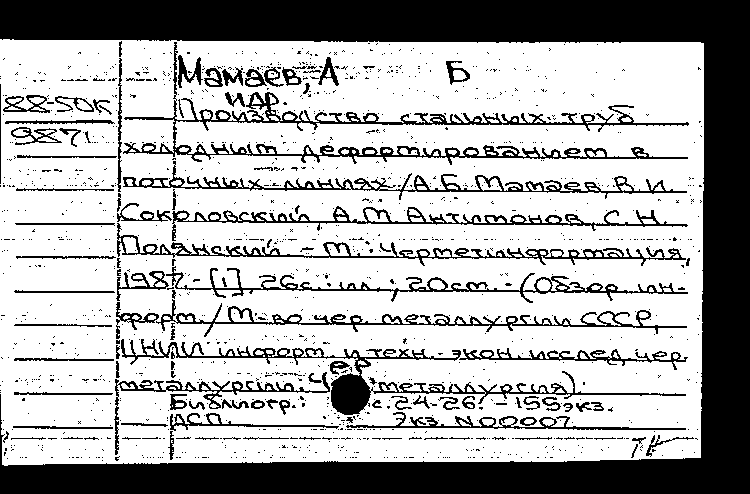 Мамаев, А Б
и др.
88-50к Производство стальных труб
9871
холодным деформированием в
поточных линиях / А. Б. Мамаев, В. И.
Соколовский, А. М. Антимонов, С. Н.
Полянский – М.: Черметинформация,
1987. - [1], 26с. : ил. ; 20см. - (Обзор. ин-
форм. / М-во чер. металлургии СССР,
ЦНИИ информ. и техн.-экон. исслед. чер.
металлургии. Чер. металлургия).
Библиогр.: с. 24-26. – 155экз.
ДСП. Экз. N00007